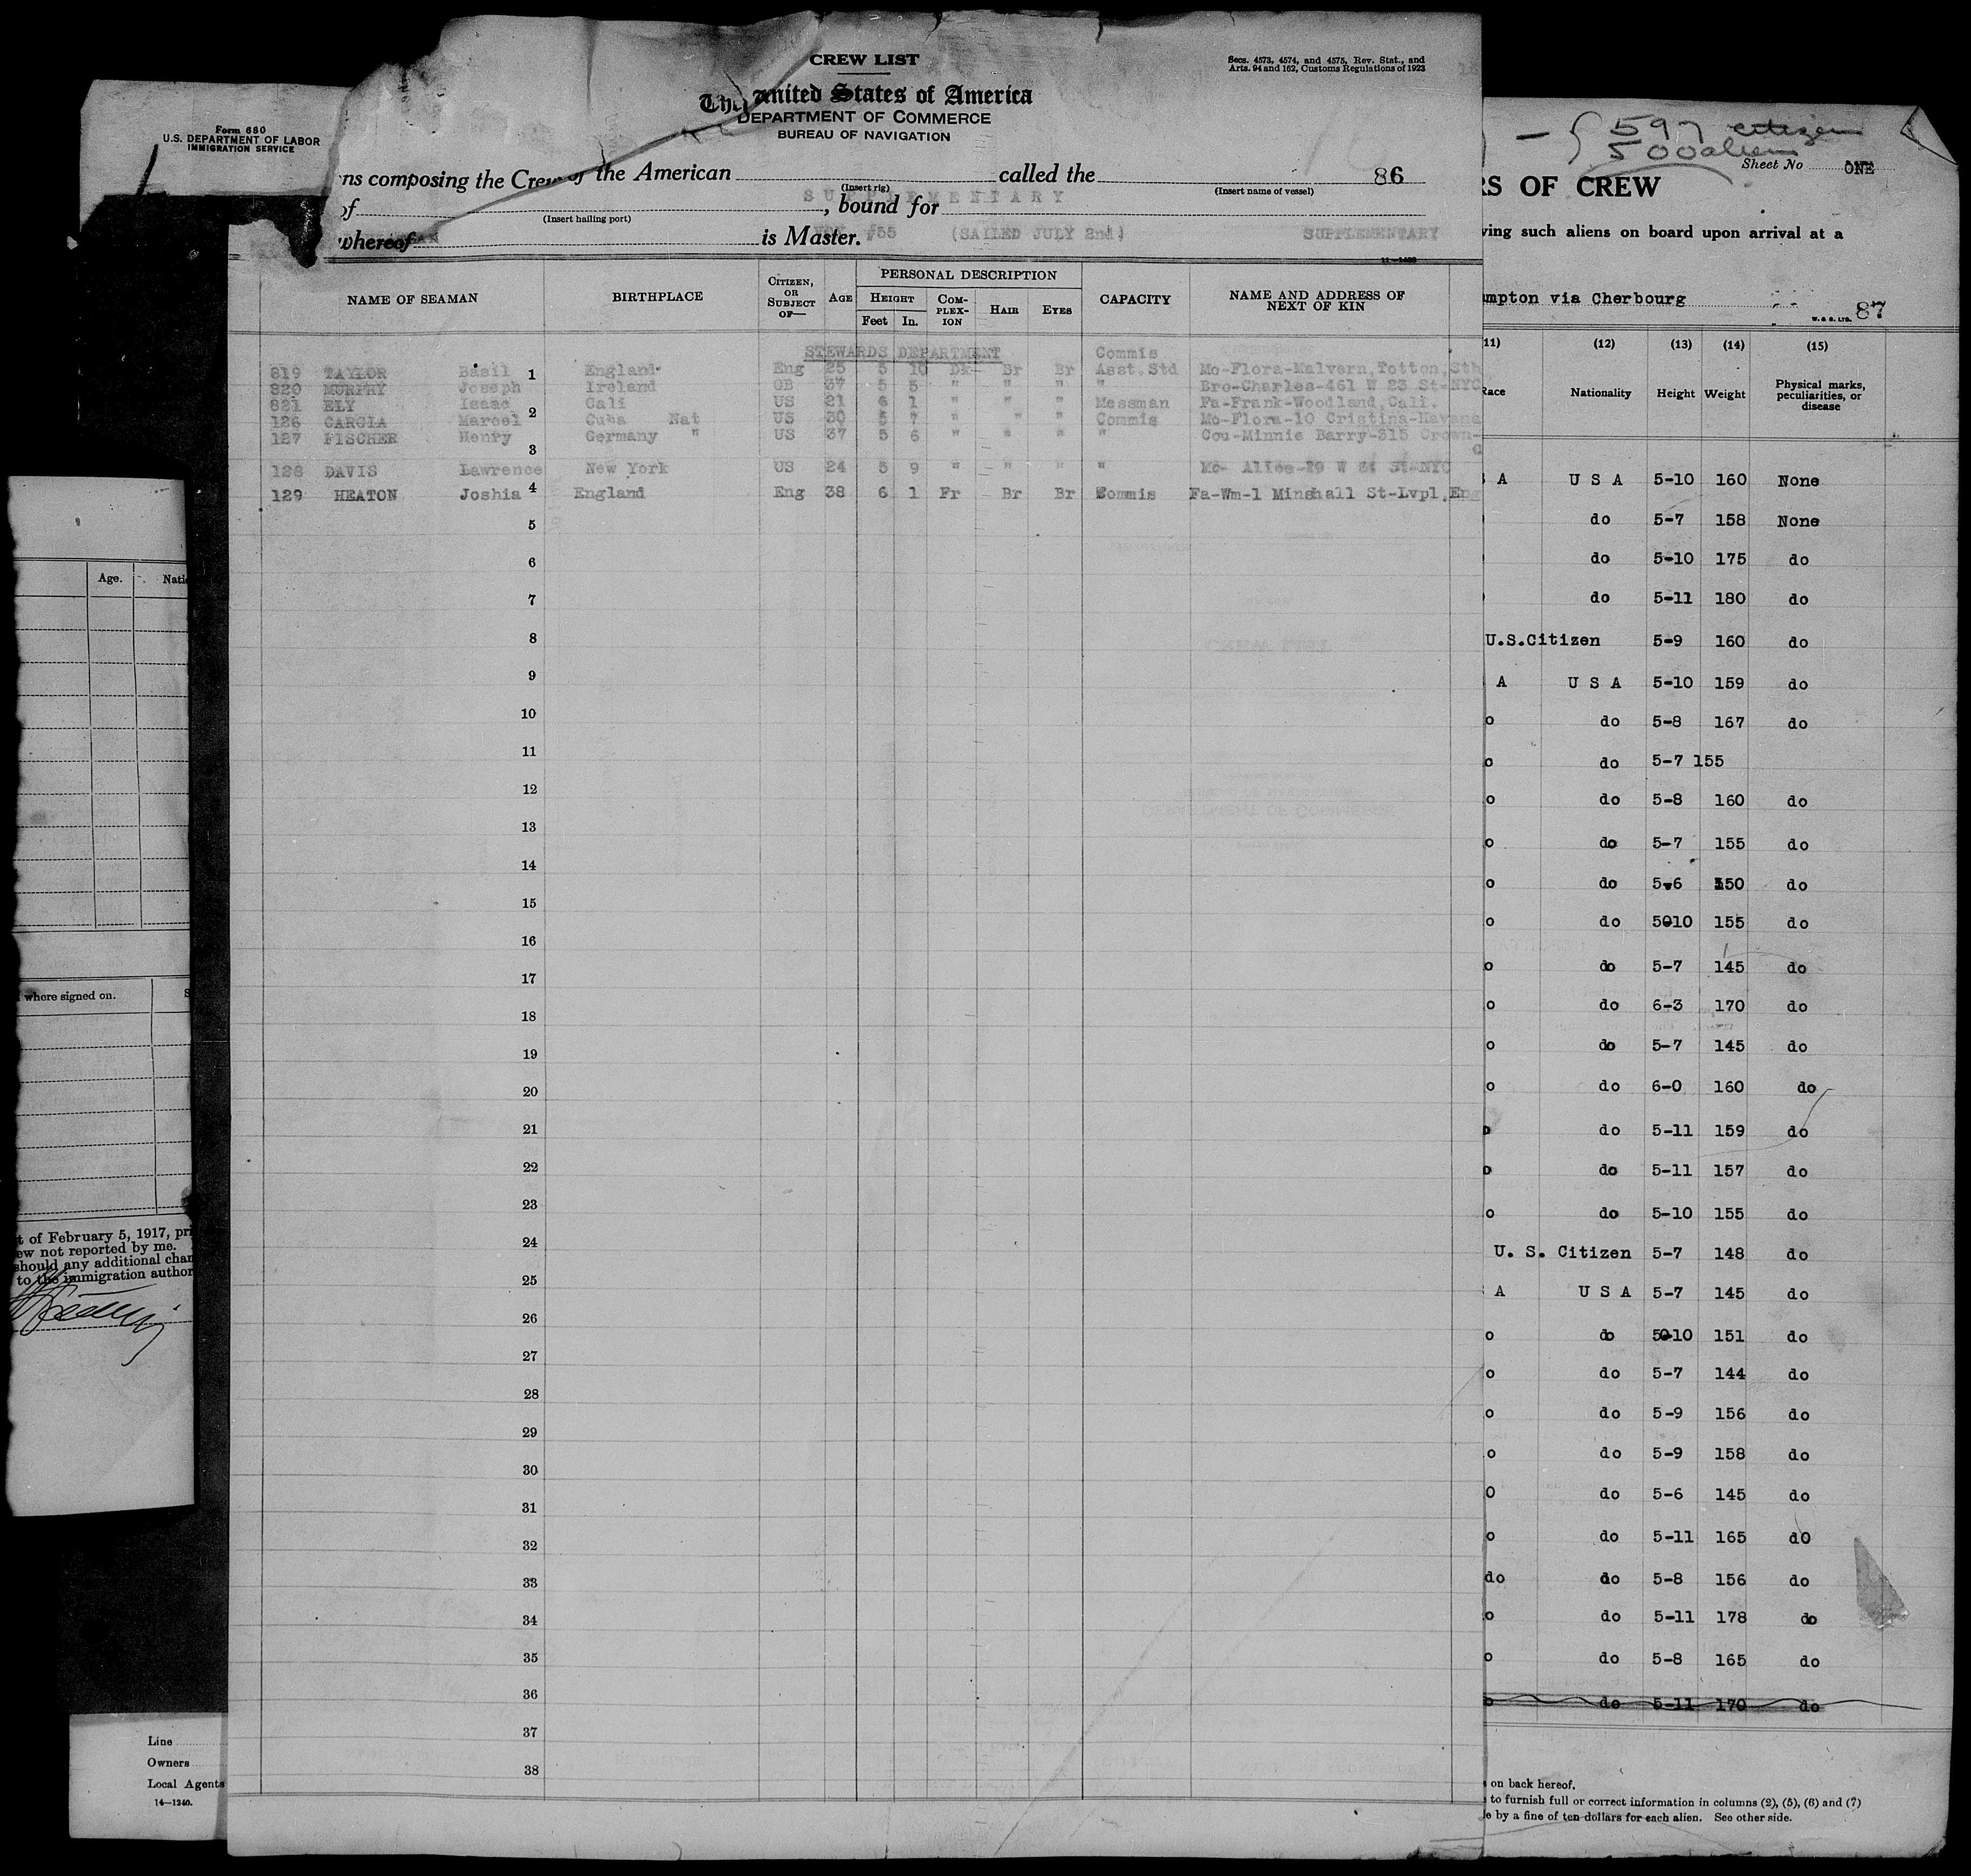 CREW LIST
Secs. 4573, 4574, and 4575, Rev. Stat., and
Arts. 94 and 162, Customs Regulations of 1923
The United States of America
DEPARTMENT OF COMMERCE
BUREAU OF NAVIGATION
ns composing the Crew of the American called the 86
(Insert rig) (Insert name of vessel)
SUPPLEMENTARY
of , bound for
(Insert hailing port)
whereof is Master. VOY #55 (SAILED JULY 2nd) SUPPLEMENTARY
NAME OF SEAMAN BIRTHPLACE CITIZEN, OR SUBJECT OF— AGE PERSONAL DESCRIPTION CAPACITY NAME AND ADDRESS OF NEXT OF KIN
HEIGHT COMPLEXION HAIR EYES
Feet In.
STEWARDS DEPARTMENT Commis
819 TAYLOR Basil 1 England Eng 25 5 10 Dk Br Br Asst.Std Mo-Flora-Malvern,Totton,Sth
820 MURPHY Joseph Ireland GB 37 5 5 " " " " Bro-Charles-461 W 23 St-NYC
821 ELY Isaac Cali US 21 6 1 " " " Messman Fa-Frank-Woodland,Cali.
126 GARCIA Marcel 2 Cuba Nat US 30 5 7 " " " Commis Mo-Flora-10 Cristina-Havana
127 FISCHER Henry Germany " US 37 5 6 " " " " Cou-Minnie Barry-315 Crown-
3
128 DAVIS Lawrence New York US 24 5 9 " " " " Mo- Alice-
129 HEATON Joshia 4 England Eng 38 6 1 Fr Br Br Commis Fa-Wm-1 Minshall St-Lvpl,Eng
5
6
7
8
9
10
11
12
13
14
15
16
17
18
19
20
21
22
23
24
25
26
27
28
29
30
31
32
33
34
35
36
37
38
Form 680
U.S. DEPARTMENT OF LABOR
IMMIGRATION SERVICE
Age. Nati
where signed on. S
t of February 5, 1917, pri
ew not reported by me.
should any additional chan
to the immigration author
Line
Owners
Local Agents
14—1240.
597 citizen
500 aliens
Sheet No ONE
RS OF CREW
ving such aliens on board upon arrival at a
mpton via Cherbourg
W. & S. LTD. 87
11) (12) (13) (14) (15)
Race Nationality Height Weight Physical marks, peculiarities, or disease
A U S A 5-10 160 None
do 5-7 158 None
do 5-10 175 do
do 5-11 180 do
U.S.Citizen 5-9 160 do
A U S A 5-10 159 do
o do 5-8 167 do
o do 5-7 155
o do 5-8 160 do
o do 5-7 155 do
o do 5-6 150 do
o do 5-10 155 do
o do 5-7 145 do
o do 6-3 170 do
o do 5-7 145 do
o do 6-0 160 do
o do 5-11 159 do
o do 5-11 157 do
o do 5-10 155 do
U. S. Citizen 5-7 148 do
A U S A 5-7 145 do
o do 5-10 151 do
o do 5-7 144 do
o do 5-9 156 do
o do 5-9 158 do
O do 5-6 145 do
o do 5-11 165 dO
do do 5-8 156 do
o do 5-11 178 do
o do 5-8 165 do
o do 5-11 170 do
on back hereof.
to furnish full or correct information in columns (2), (5), (6) and (7)
le by a fine of ten dollars for each alien. See other side.